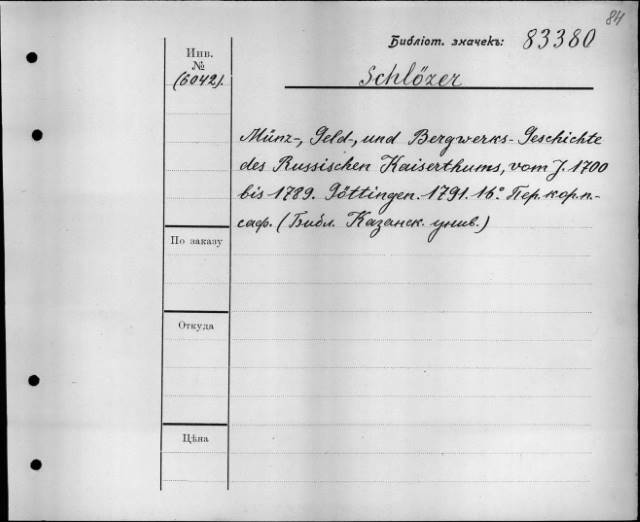 84
Библіот. значекъ: 83380
Инв.
№
(6042).
Schlözer
Münz-, Geld-, und Bergwerks-Geschichte
des Russischen Kaiserthums, vom J. 1700
bis 1789. Göttingen. 1791. 16°. Пер. кор. п.-
саф. (Библ. Казанск. унив.)
По заказу
Откуда
Цѣна